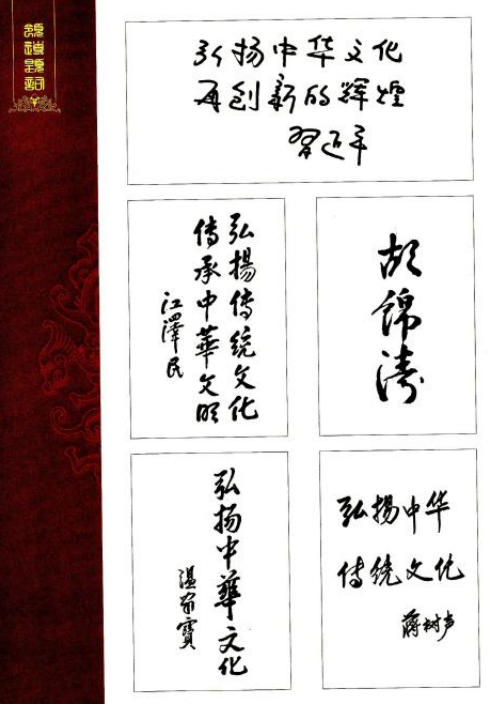 领导题词
弘扬中华文化
再创新的辉煌
習近平
弘揚傳統文化
傳承中華文明
江澤民
胡錦濤
弘扬中華文化
温家寶
弘揚中华
傳統文化
蒋树声